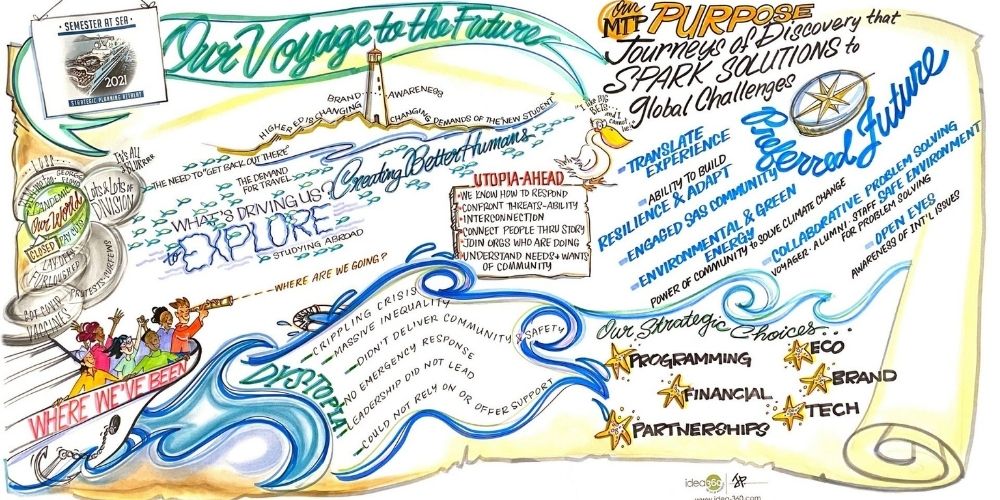 SEMESTER AT SEA
2021
STRATEGIC PLANNING RETREAT
Our Voyage to the Future
Our
MTP PURPOSE
Journeys of Discovery that
SPARK SOLUTIONS to
global Challenges
BRAND AWARENESS
HIGHER ED IS CHANGING
CHANGING DEMANDS OF THE "NEW STUDENT"
"I like BIG
BETS
and I
cannot
lie"
THE NEED TO "GET BACK OUT THERE"
THE DEMAND
FOR TRAVEL
Creating Better Humans
WHAT'S DRIVING US?
to EXPLORE
STUDYING ABROAD
WHERE ARE WE GOING?
IT'S ALL
A BLURRRR
GEORGE
FLOYD
PANDEMIC
Our World
CLOSED
Lots & Lots of
DIVISION
LAYOFFS
FURLOUGHED
PROTESTS
GOT COVID
VACCINES
WHERE WE'VE BEEN
UTOPIA-AHEAD
WE KNOW HOW TO RESPOND
CONFRONT THREATS-ABILITY
INTERCONNECTION
CONNECT PEOPLE THRU STORY
JOIN ORGS WHO ARE DOING
UNDERSTAND NEEDS + WANTS
OF COMMUNITY
DYSTOPIA
CRIPPLING CRISIS
MASSIVE INEQUALITY
DIDN'T DELIVER COMMUNITY & SAFETY
NO EMERGENCY RESPONSE
LEADERSHIP DID NOT LEAD
COULD NOT RELY ON OR OFFER SUPPORT
Preferred Future
TRANSLATE
EXPERIENCE
ABILITY TO BUILD
RESILIENCE & ADAPT
ENGAGED SAS COMMUNITY
ENVIRONMENTAL & GREEN
ENERGY
POWER OF COMMUNITY TO SOLVE CLIMATE CHANGE
COLLABORATIVE PROBLEM SOLVING
SAFE ENVIRONMENT
VOYAGER-ALUMNI-STAFF
FOR PROBLEM SOLVING
OPEN EYES
AWARENESS OF INT'L ISSUES
Our Strategic Choices...
PROGRAMMING
ECO
FINANCIAL
BRAND
PARTNERSHIPS
TECH
idea360
www.idea-360.com